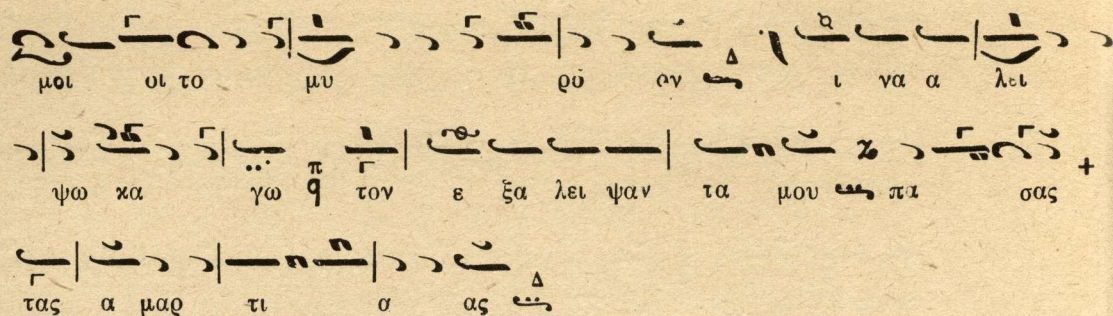 μοι οι το μυ ρο ον Δ ι να α λει
ψω κα γω π q τον ε ξα λει ψαν τα μου πα σας
τας α μαρ τι α ας Δ